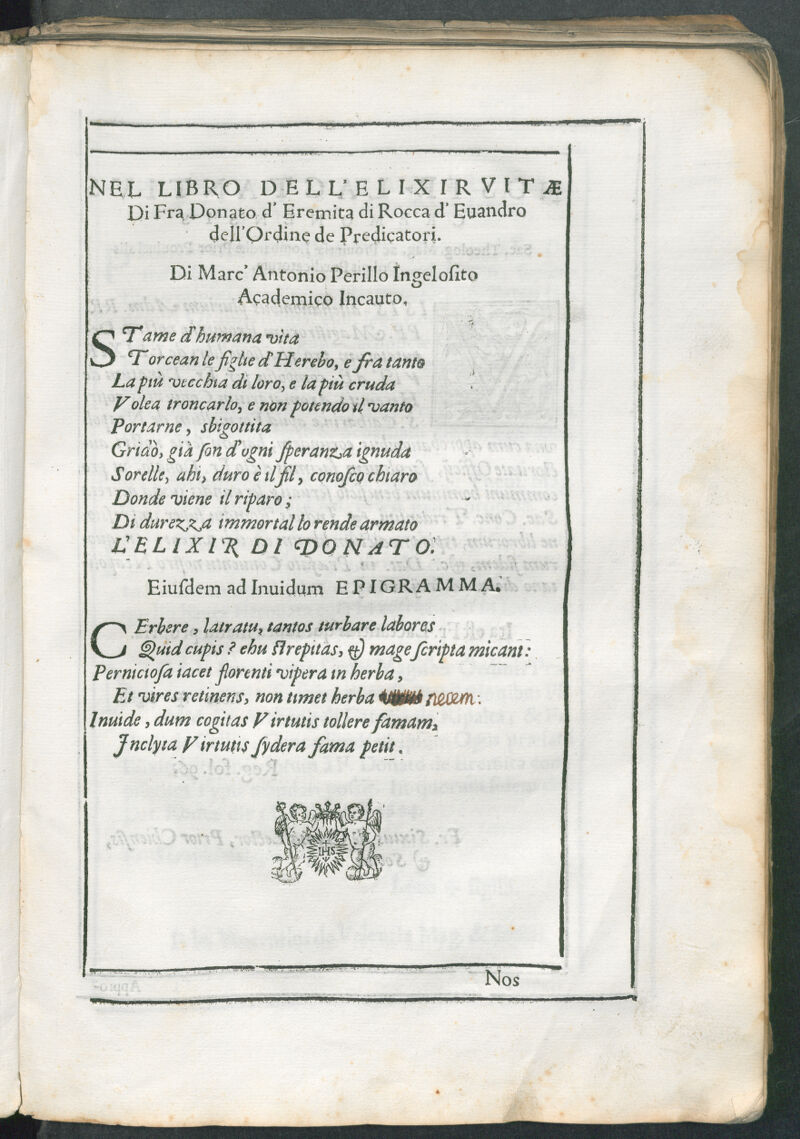 NEL LIBRO DELL'ELIXIR VITÆ
Di Fra Donato d' Eremita di Rocca d' Euandro
dell'Ordine de Predicatori.
Di Marc' Antonio Perillo Ingelosito
Academico Incauto.
STame d'humana vita
Torcean le figlie d'Herebo, e fra tanto
La più vecchia di loro, e la più cruda
Volea troncarlo, e non potendo il vanto
Portarne, sbigottita
Gridò, già son d'ogni speranza ignuda
Sorelle, ahi, duro è il fil, conosco chiaro
Donde viene il riparo;
Di durezza immortal lo rende armato
L'ELIXIR DI DONATO.
Eiusdem ad Inuidum EPIGRAMMA.
CErbere, latratu, tantos turbare labores
Quid cupis? ehu strepitas, & mage scripta micant:
Perniciosa iacet florenti vipera in herba,
Et vires retinens, non timet herba necem:
Inuide, dum cogitas Virtutis tollere famam,
Inclyta Virtutis sydera fama petit.
IHS
Nos